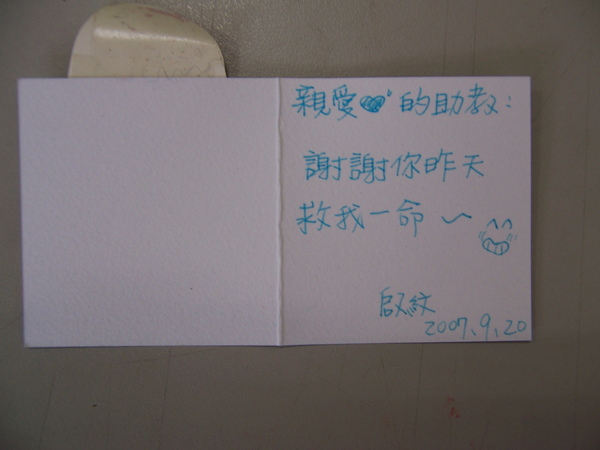 親愛的助教：
謝謝你昨天
救我一命～
啟紋
2007.9.20